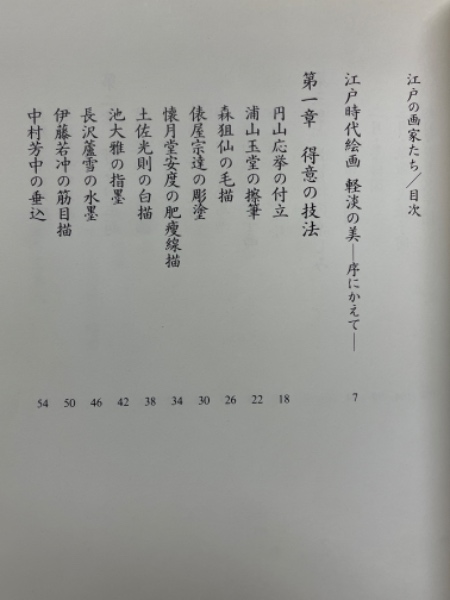 江戸の画家たち／目次
江戸時代絵画 軽淡の美――序にかえて―― 7
第一章 得意の技法
円山応挙の付立 18
浦山玉堂の擦筆 22
森狙仙の毛描 26
俵屋宗達の彫塗 30
懐月堂安度の肥痩線描 34
土佐光則の白描 38
池大雅の指墨 42
長沢蘆雪の水墨 46
伊藤若冲の筋目描 50
中村芳中の垂込 54